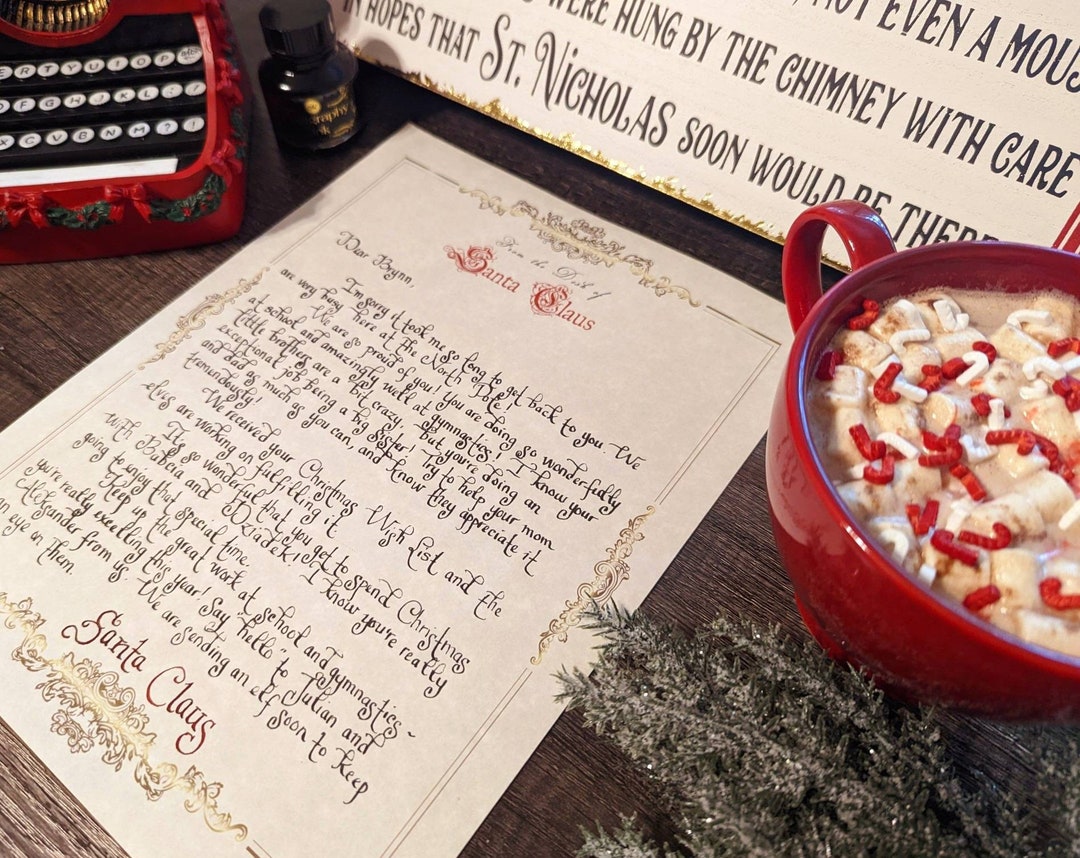 NOT EVEN A MOUS
WERE HUNG BY THE CHIMNEY WITH CARE
IN HOPES THAT ST. NICHOLAS SOON WOULD BE THERE
ERTYUIOP
DFGHJKL
XCVBNM?!
From the Desk of
Santa Claus
Dear Brynn,
I'm sorry it took me so long to get back to you. We
are very busy here at the North Pole!
We are so proud of you! You are doing so wonderfully
at school and amazingly well at gymnastics! I know your
little brothers are a bit crazy, but you're doing an
exceptional job being a big sister! Try to help your mom
and dad as much as you can, and know they appreciate it
tremendously!
We received your Christmas Wish List and the
elves are working on fulfilling it
It's so wonderful that you get to spend Christmas
with Babcia and Dziadek! I know you're really
going to enjoy that special time.
Keep up the great work at school and gymnastics -
you're really excelling this year! Say "hello" to Julian and
Alexsander from us. We are sending an elf soon to keep
an eye on them.
Santa Claus